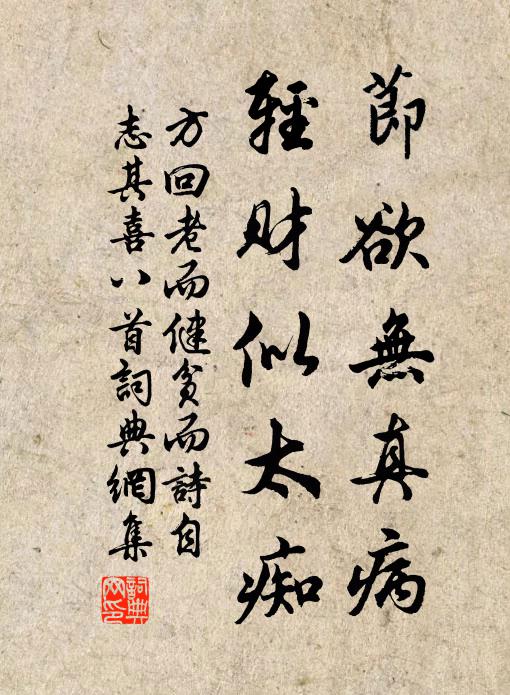 節欲無真病
輕財似太痴
方回老而健貧而詩自
志其喜八首詞典網集
詞典網印